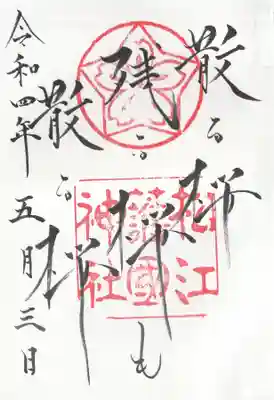 散る桜
残る桜も
散る桜
令和四年五月三日
松江
護國
神社